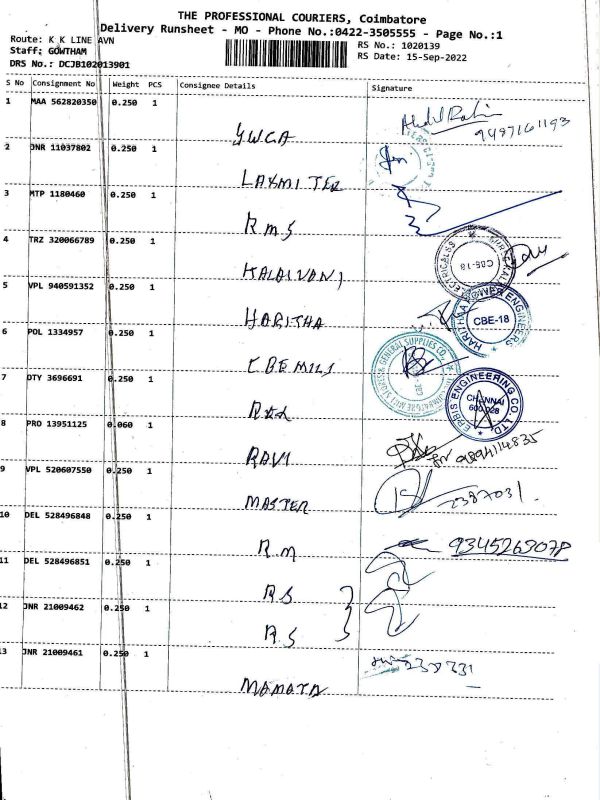 THE PROFESSIONAL COURIERS, Coimbatore
Delivery Runsheet - MO - Phone No.:0422-3505555 - Page No.:1
Route: K K LINE AVN
RS No.: 1020139
Staff: GOWTHAM
RS Date: 15-Sep-2022
DRS No.: DCJB102013901
S No Consignment No Weight PCS Consignee Details Signature
1 MAA 562820350 0.250 1
YWCA
Abdul Rahi
9497161193
2 JNR 11037802 0.250 1
LAXMI TER
3 MTP 1180460 0.250 1
RMS
4 TRZ 320066789 0.250 1
KALAIVANI
CBE-18
5 VPL 940591352 0.250 1
HARITHA
HARITHA POWER ENGINEERS
CBE-18
6 POL 1334957 0.250 1
CBE MILS
COIMBATORE MILL STORES & GENERAL SUPPLIES CO.
7 DTY 3696691 0.250 1
EBBIS ENGINEERING CO. LTD.
CHENNAI
600 028
8 PRO 13951125 0.060 1
RAVI
9894114835
9 VPL 520607550 0.250 1
MASTER
2387031
10 DEL 528496848 0.250 1
R.M
11 DEL 528496851 0.250 1
RS
12 JNR 21009462 0.250 1
RS
13 JNR 21009461 0.250 1
MAMATA